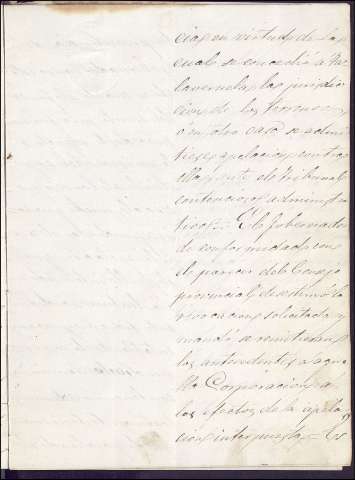 cia, en virtud de la
cual se concedió a Ta
laveruela, la jurisdic
cion de los terrenos,
ó en otro caso se admi
tiese apelacion contra
ella, ante el tribunal
contencioso administra
tivo. El Gobernador
de conformidad con
el parecer del Consejo
provincial desestimó la
revocacion solicitada y
mandó se remitiesen
los antecedentes a aque
lla Corporacion a
los efectos de la apela
cion interpuesta. Es